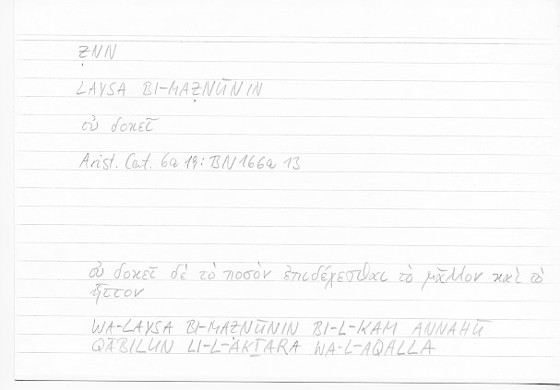 ẒNN
LAYSA BI-MAẒNŪNIN
οὐ δοκεῖ
Arist. Cat. 6a 19: BN 166a 13
οὐ δοκεῖ δὲ τὸ ποσὸν ἐπιδέχεσθαι τὸ μᾶλλον καὶ τὸ
ἧττον
WA-LAYSA BI-MAẒNŪNIN BI-L-KAM ANNAHŪ
QĀBILUN LI-L-AKṮARA WA-L-AQALLA